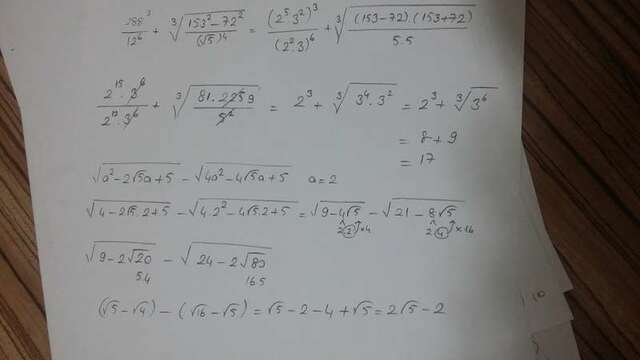 288³/12⁶ + ∛((153²-72²)/(√5)⁴) = (2⁵3²)³/(2²3)⁶ + ∛((153-72)·(153+72)/5.5)
2¹⁵·3⁶/2¹²·3⁶ + ∛(81.225 9/5²) = 2³ + ∛(3⁴·3²) = 2³ + ∛(3⁶)
= 8+9
= 17
√(a²-2√5a+5) - √(4a²-4√5a+5) a=2
√(4-2√5.2+5) - √(4.2²-4√5.2+5) = √(9-4√5) - √(21-8√5)
2.2 x4 2.4 x16
√(9-2√20) - √(24-2√80)
5.4 16.5
(√5-√4) - (√16-√5) = √5-2-4+√5 = 2√5-2
10